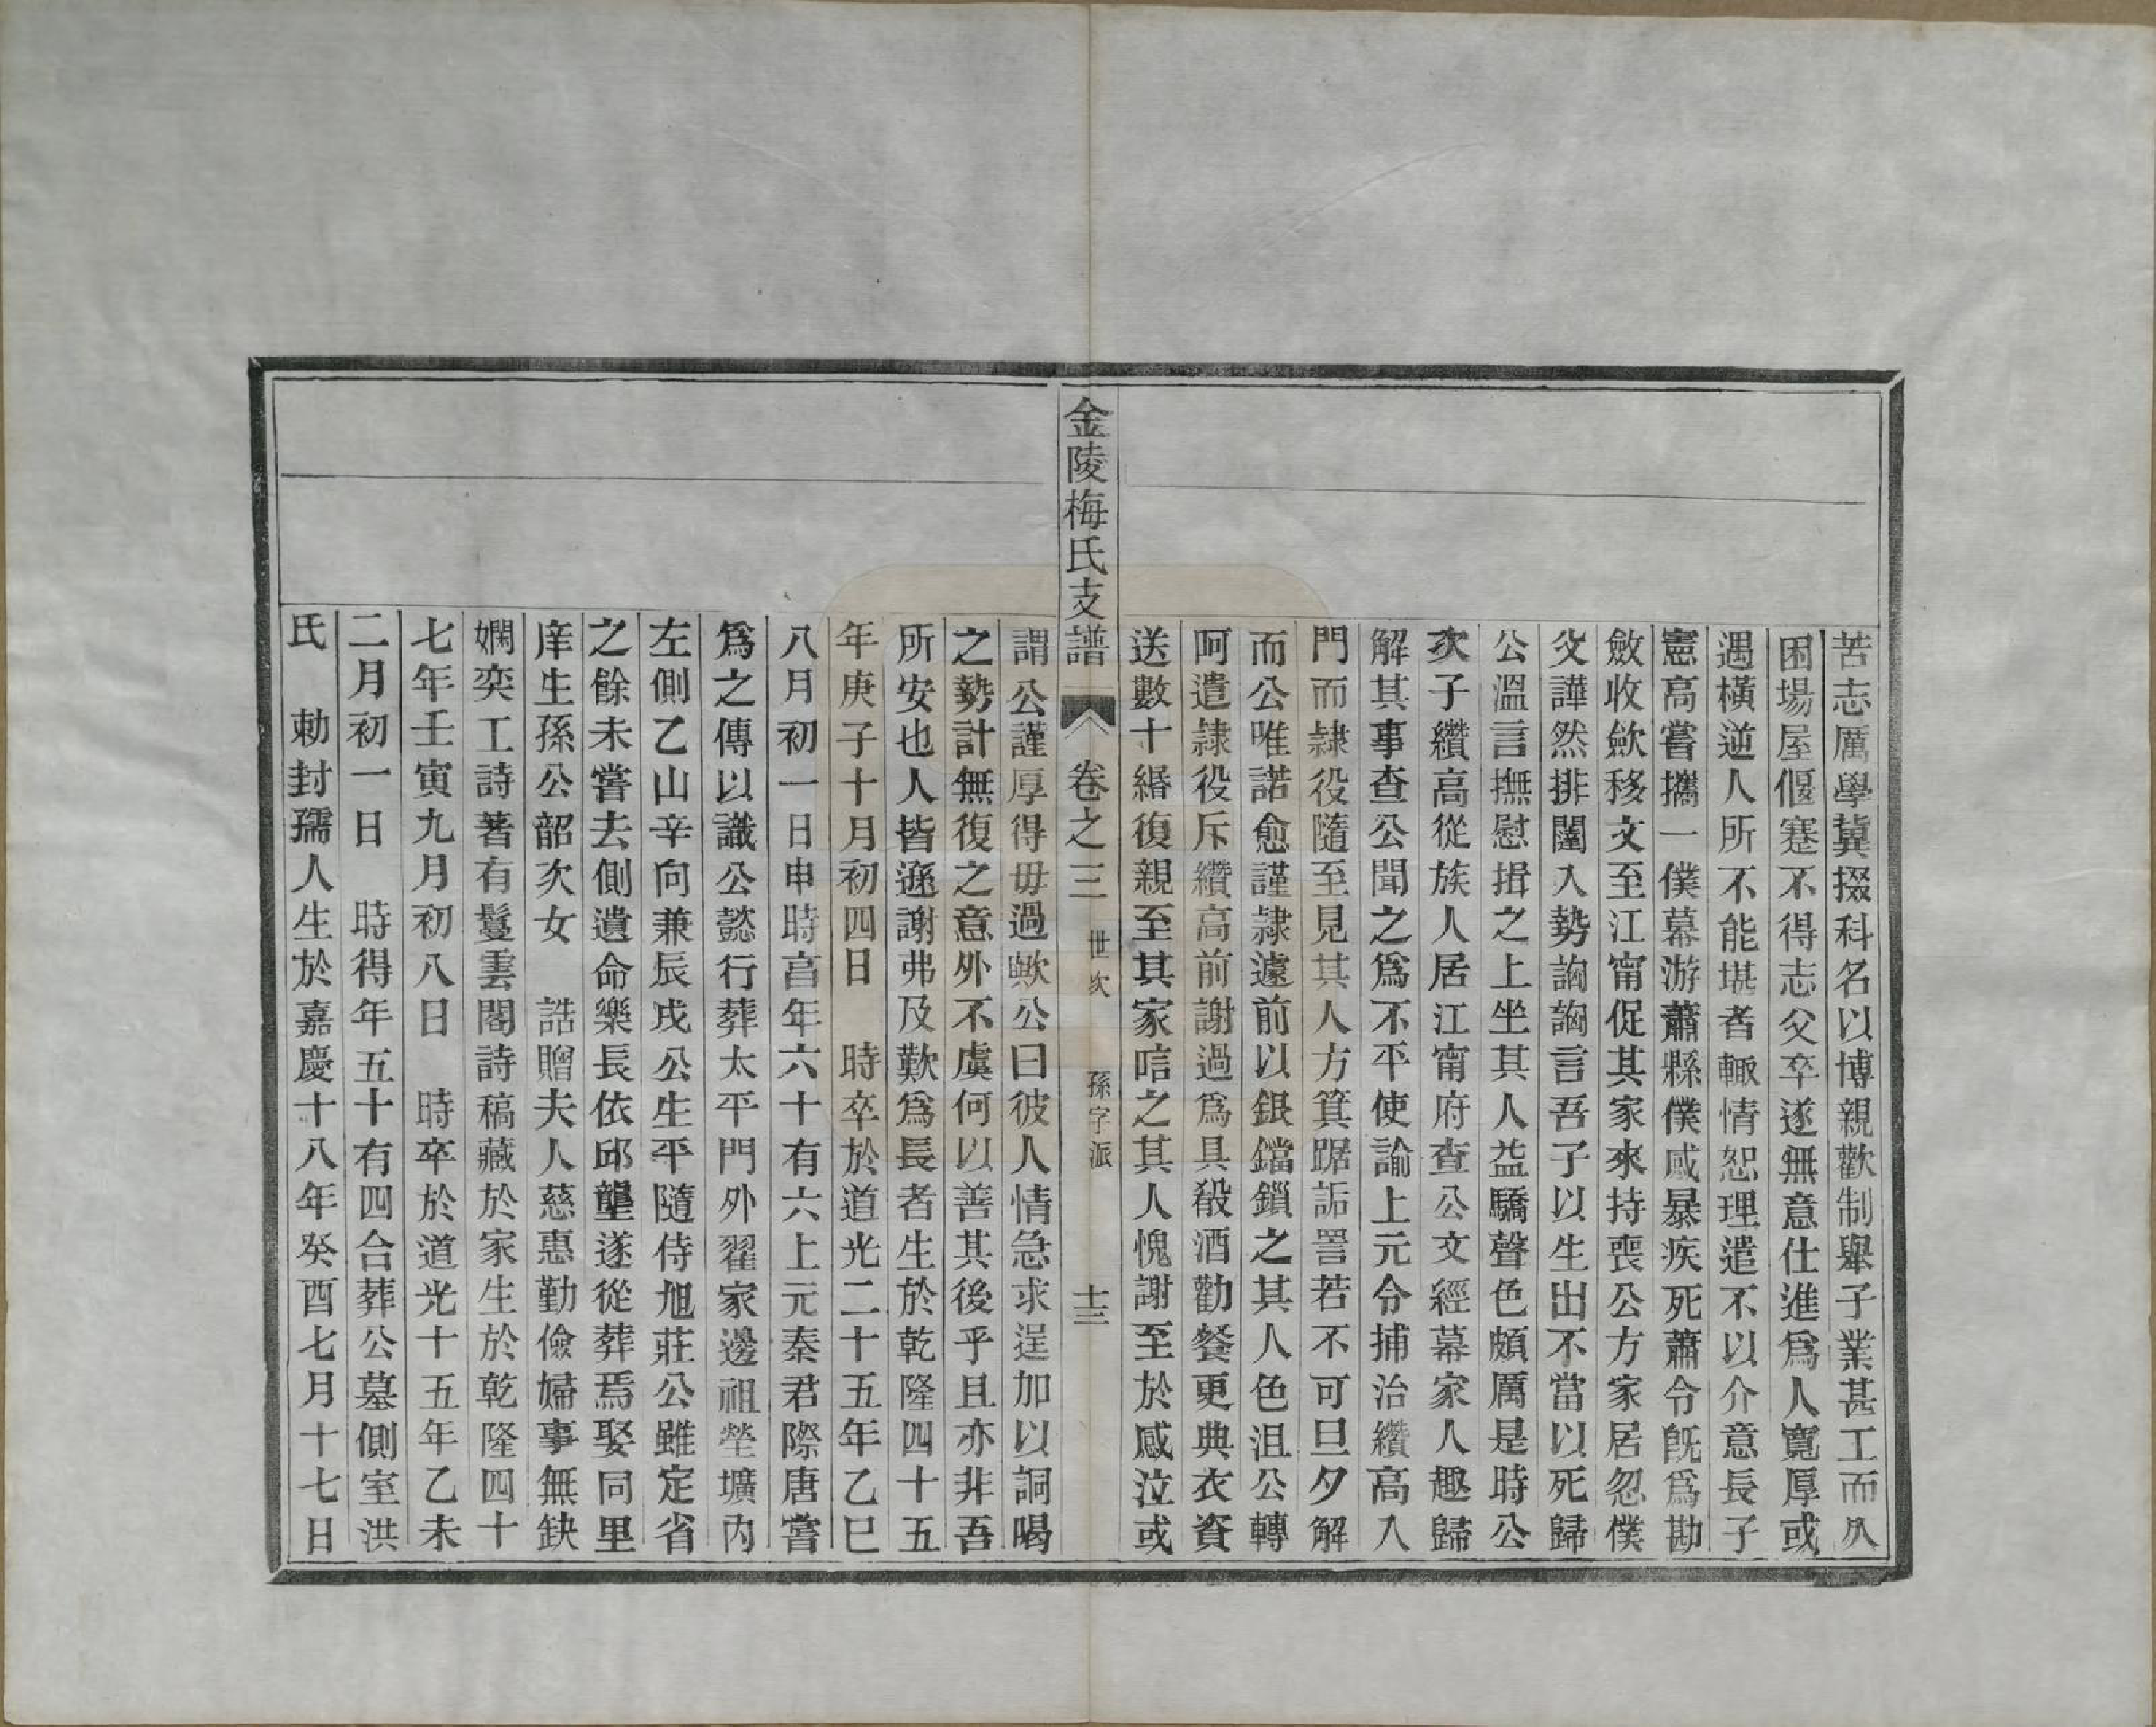 苦志厲學冀掇科名以博親歡制舉子業甚工而久
困場屋偃蹇不得志父卒遂無意仕進爲人寬厚或
遇橫逆人所不能堪者輙情恕理遣不以介意長子
憲高嘗攜一僕幕游蕭縣僕感暴疾死蕭令旣爲勘
斂收斂移文至江甯促其家來持喪公方家居忽僕
父譁然排闥入勢詾詾言吾子以生出不當以死歸
公溫言撫慰揖之上坐其人益驕聲色頗厲是時公
次子纘高從族人居江甯府查公文經幕家人趣歸
解其事查公聞之爲不平使諭上元令捕治纘高入
門而隷役隨至見其人方箕踞詬詈若不可旦夕解
而公唯諾愈謹隷遽前以銀鐺鎖之其人色沮公轉
呵遣隷役斥纘高前謝過爲具殽酒勸餐更典衣資
送數十緡復親至其家唁之其人愧謝至於感泣或
金陵梅氏支譜 卷之三 世次 孫字派 十三
謂公謹厚得毋過歟公曰彼人情急求逞加以詗喝
之勢計無復之意外不虞何以善其後乎且亦非吾
所安也人皆遜謝弗及歎爲長者生於乾隆四十五
年庚子十月初四日 時卒於道光二十五年乙巳
八月初一日申時亯年六十有六上元秦君際唐嘗
爲之傳以識公懿行葬太平門外翟家邊祖塋壙內
左側乙山辛向兼辰戌公生平隨侍旭莊公雖定省
之餘未嘗去側遺命樂長依邱壟遂從葬焉娶同里
庠生孫公韶次女 誥贈夫人慈惠勤儉婦事無缺
嫻奕工詩著有鬘雲閣詩稿藏於家生於乾隆四十
七年壬寅九月初八日 時卒於道光十五年乙未
二月初一日 時得年五十有四合葬公墓側室洪
氏 勅封孺人生於嘉慶十八年癸酉七月十七日